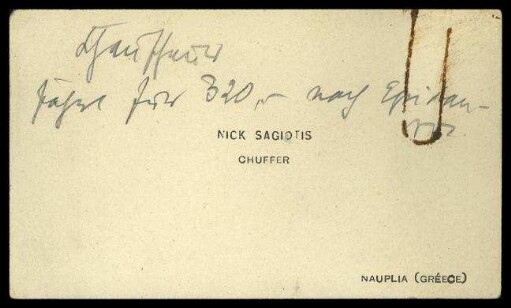 Chauffeur
fährt für 320,- nach Epidau-
ros.
NICK SAGIOTIS
CHUFFER
NAUPLIA (GRÉECE)